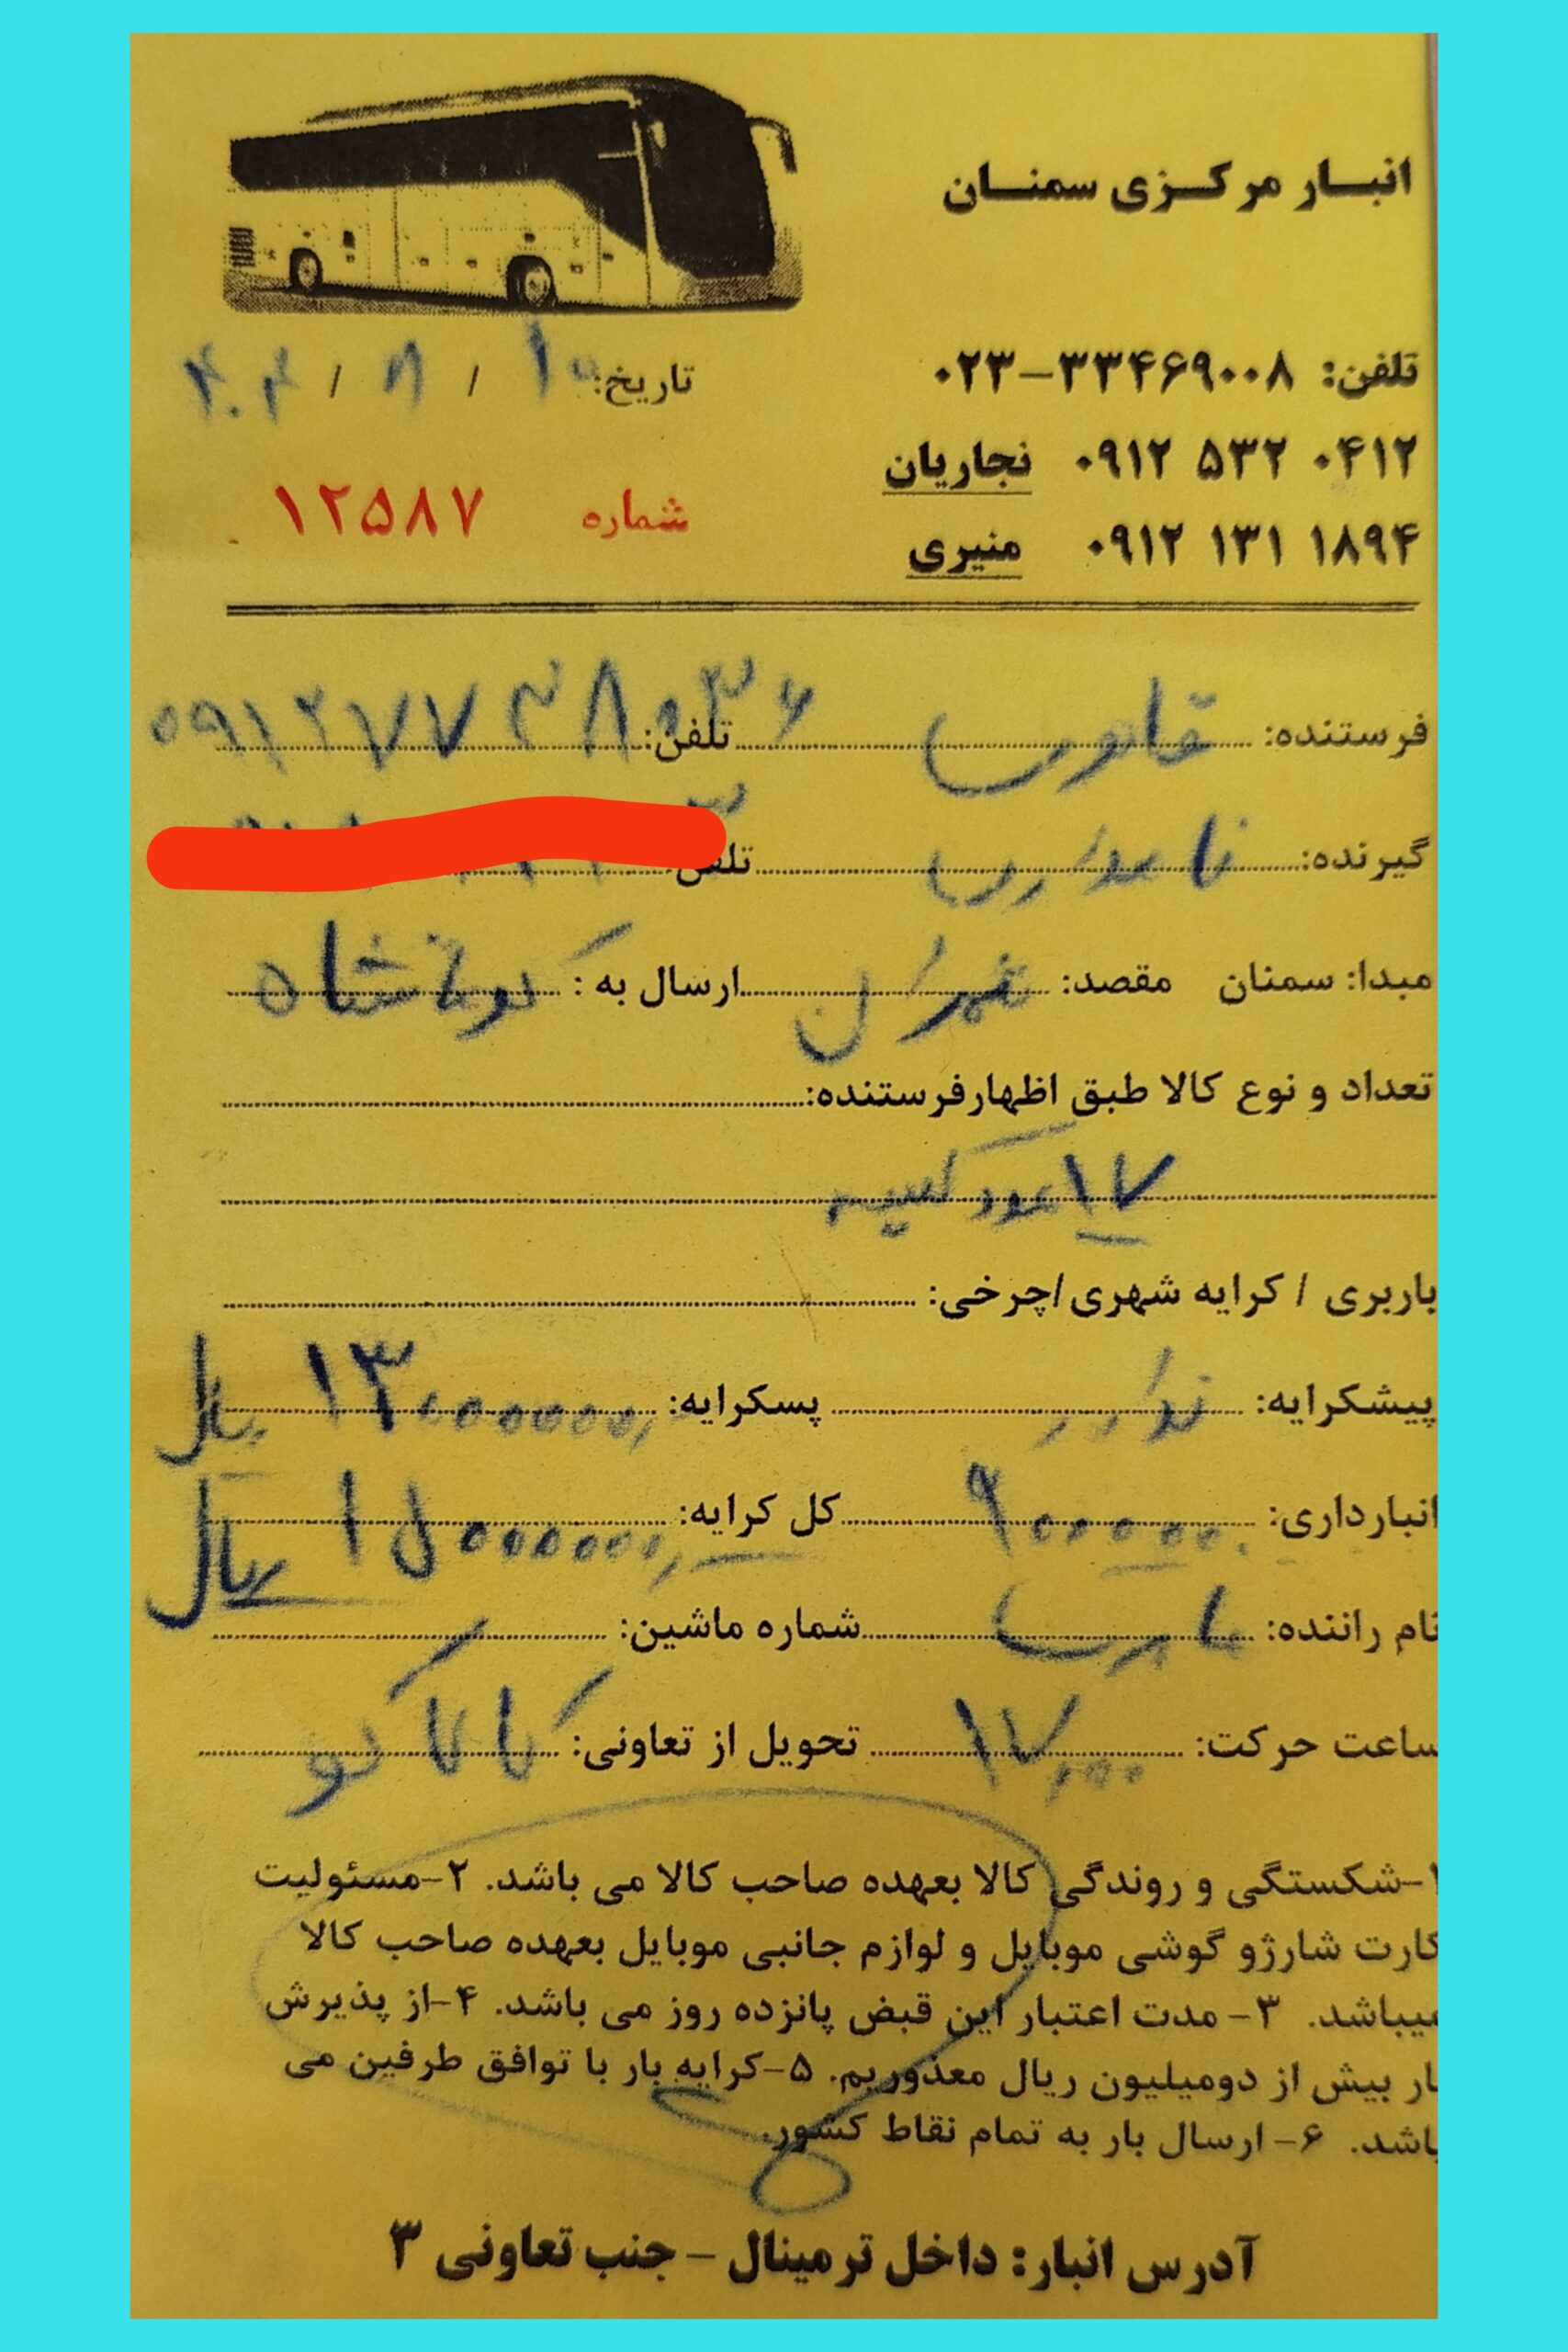 انبار مرکزی سمنان
تلفن: ۰۲۳-۳۳۴۶۹۰۰۸
۰۹۱۲ ۵۳۲ ۰۴۱۲ نجاریان
۰۹۱۲ ۱۳۱ ۱۸۹۴ منیری
تاریخ: / ۸ /
شماره ۱۲۵۸۷
فرستنده: تلفن:
گیرنده: تلفن
مبدا: سمنان مقصد: تهران ارسال به : کرمانشاه
تعداد و نوع کالا طبق اظهارفرستنده:
۱۷ عدد کیسه
باربری / کرایه شهری/چرخی:
پیشکرایه: ندارد پسکرایه: ریال
انبارداری: کل کرایه: ریال
نام راننده: شماره ماشین:
ساعت حرکت: ۱۷ تحویل از تعاونی:
۱-شکستگی و روندگی کالا بعهده صاحب کالا می باشد. ۲-مسئولیت
کارت شارژو گوشی موبایل و لوازم جانبی موبایل بعهده صاحب کالا
میباشد. ۳- مدت اعتبار این قبض پانزده روز می باشد. ۴-از پذیرش
بار بیش از دومیلیون ریال معذوریم. ۵-کرایه بار با توافق طرفین می
باشد. ۶- ارسال بار به تمام نقاط کشور.
آدرس انبار: داخل ترمینال - جنب تعاونی ۳